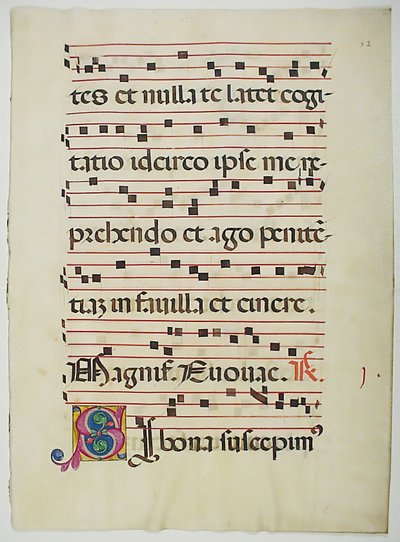 52
tes et nulla te latet cogi-
tatio idcirco ipse me re-
prehendo et ago penitē-
tiaz in favilla et cinere.
Magnif. Euouae. R.
S I bona suscepim⁹